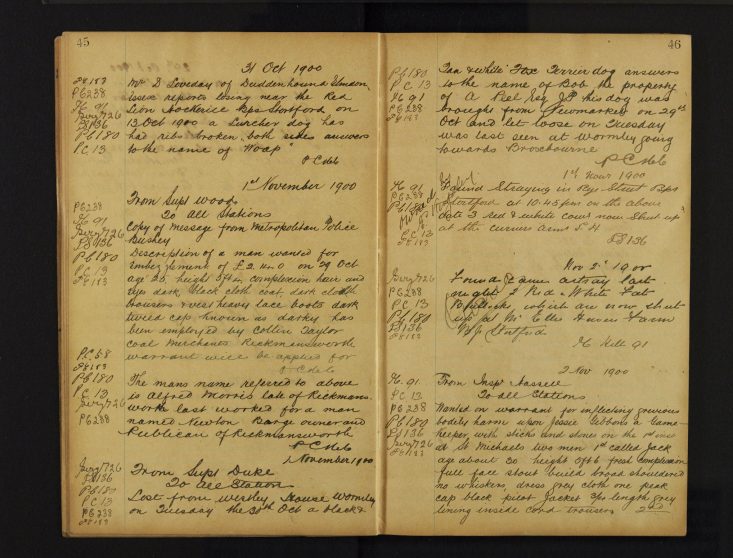 45
31 Oct 1900
Mr D Loveday of Duddenhoundo Elmdon
Essex reports losing near the Red
Lion Bps Stortford on
13 Oct 1900 a Lurcher dog has
had ribs broken both sides answers
to the name of "Hoap"
PS 183
PC 238
Kg 91
Serg 726
PS 136
PC 180
PC 13
1st November 1900
From Supt Wood
To all Stations
Copy of message from Metropolitan Police
Bushey
Description of a man wanted for
embezzlement of £2.11.0 on 29 Oct
age 25 height 5 ft complexion hair and
eyes dark black cloth coat dark cloth
trousers & vest heavy lace boots dark
tweed cap known as darky has
been employed by Cotton Taylor
Coal Merchants Rickmansworth
warrant will be applied for
PC 238
Kg 91
Serg 726
PS 136
PC 180
PC 13
PS 183
The mans name referred to above
is Alfred Morris late of Rickmans
worth last worked for a man
named Newton Barge owner and
Publican of Rickmansworth
PC 58
PS 183
PC 180
PC 13
Serg 726
PC 238
1 November 1900
From Supt Duke
To all Stations
Lost from House Wormley
on Tuesday the 30th Oct a black &
Serg 726
PS 136
PC 180
PC 13
PC 238
PS 183
46
Tan & white Fox Terrier dog answers
to the name of Bob the property
of A Peel Esq JP this dog was
brought from Newmarket on 29th
Oct and let loose on Tuesday
was last seen at Wormley going
towards Broxbourne
PC 180
PC 13
Kg 91
PC 238
PS 183
1st Novr 1900
Found Straying in Rye Street Bps
Stortford at 10.45 pm on the above
date 3 red & white cows now shut up
at the Curriers Arms S. H
PS 136
Kg 91
PC 238
PC 180
PC 13
PS 183
Nov 2nd 1900
Found astray last
night 2 Red & White Fat
Bullock which are now shut
up at Mr Ellis Farm
Bp Stortford
Kg Hill 91
Serg 726
PC 238
PC 13
PC 180
PS 136
PS 183
2 Nov 1900
From Insp Hassell
To all Stations
Wanted on warrant for inflicting grievous
bodily harm upon Jessie Gibbons a Game-
keeper with sticks and stones on the 1st inst
at St Michaels two men 1st called Jack
age about 30 height 5ft 6 fresh complexion
full face stout build broad shouldered
no whiskers dress grey cloth one peak
cap black pilot jacket 3/4 length grey
lining inside cord trousers 2nd
Kg 91
PC 13
PC 238
PC 180
PS 136
Serg 726
PS 183